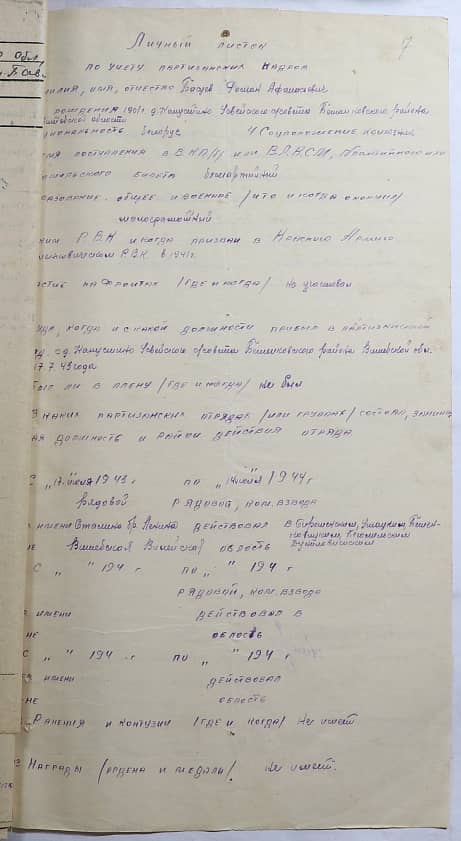 7
Личный листок
по учету партизанских кадров
милия, имя, отчество Афанасович
рождения 1901г. д. Капустино Усвейского с/совета Бешенковского района
Витебской области
циональность Белорус 4/ Соцположение
мя поступления в ВКП/б/ или ВЛКСМ,
мольского билета беспартийный
разование общее и военное /что и когда окончил/
малограмотный
ким РВК и когда призван в Красную Армию
РВК в 1941 г.
стие на фронтах /где и когда/ не участвовал
уда, когда и с какой должности прибыл в партизанский
яд. с д. Капустино Усвейского с/совета Бешенковского района Витебской обл.
17.7.43 года
был ли в плену /где и когда/ не был
в каких партизанских отрядах /или группах/ состоял,
ая должность и район действия отряда
с „17" июля 1943 г по „ " июля 1944 г
рядовой рядовой, ком. взвода
имени Сталина бр. Ленина действовал в
не Витебская Вилейская область
с „ " 194 г по „ " 194 г
рядовой, ком. взвода
имени действовал в
не область
с „ " 194 г по „ " 194 г
имени действовал
не область
Ранения и контузии /где и когда/ не имеет
Награды /ордена и медали/ не имеет.